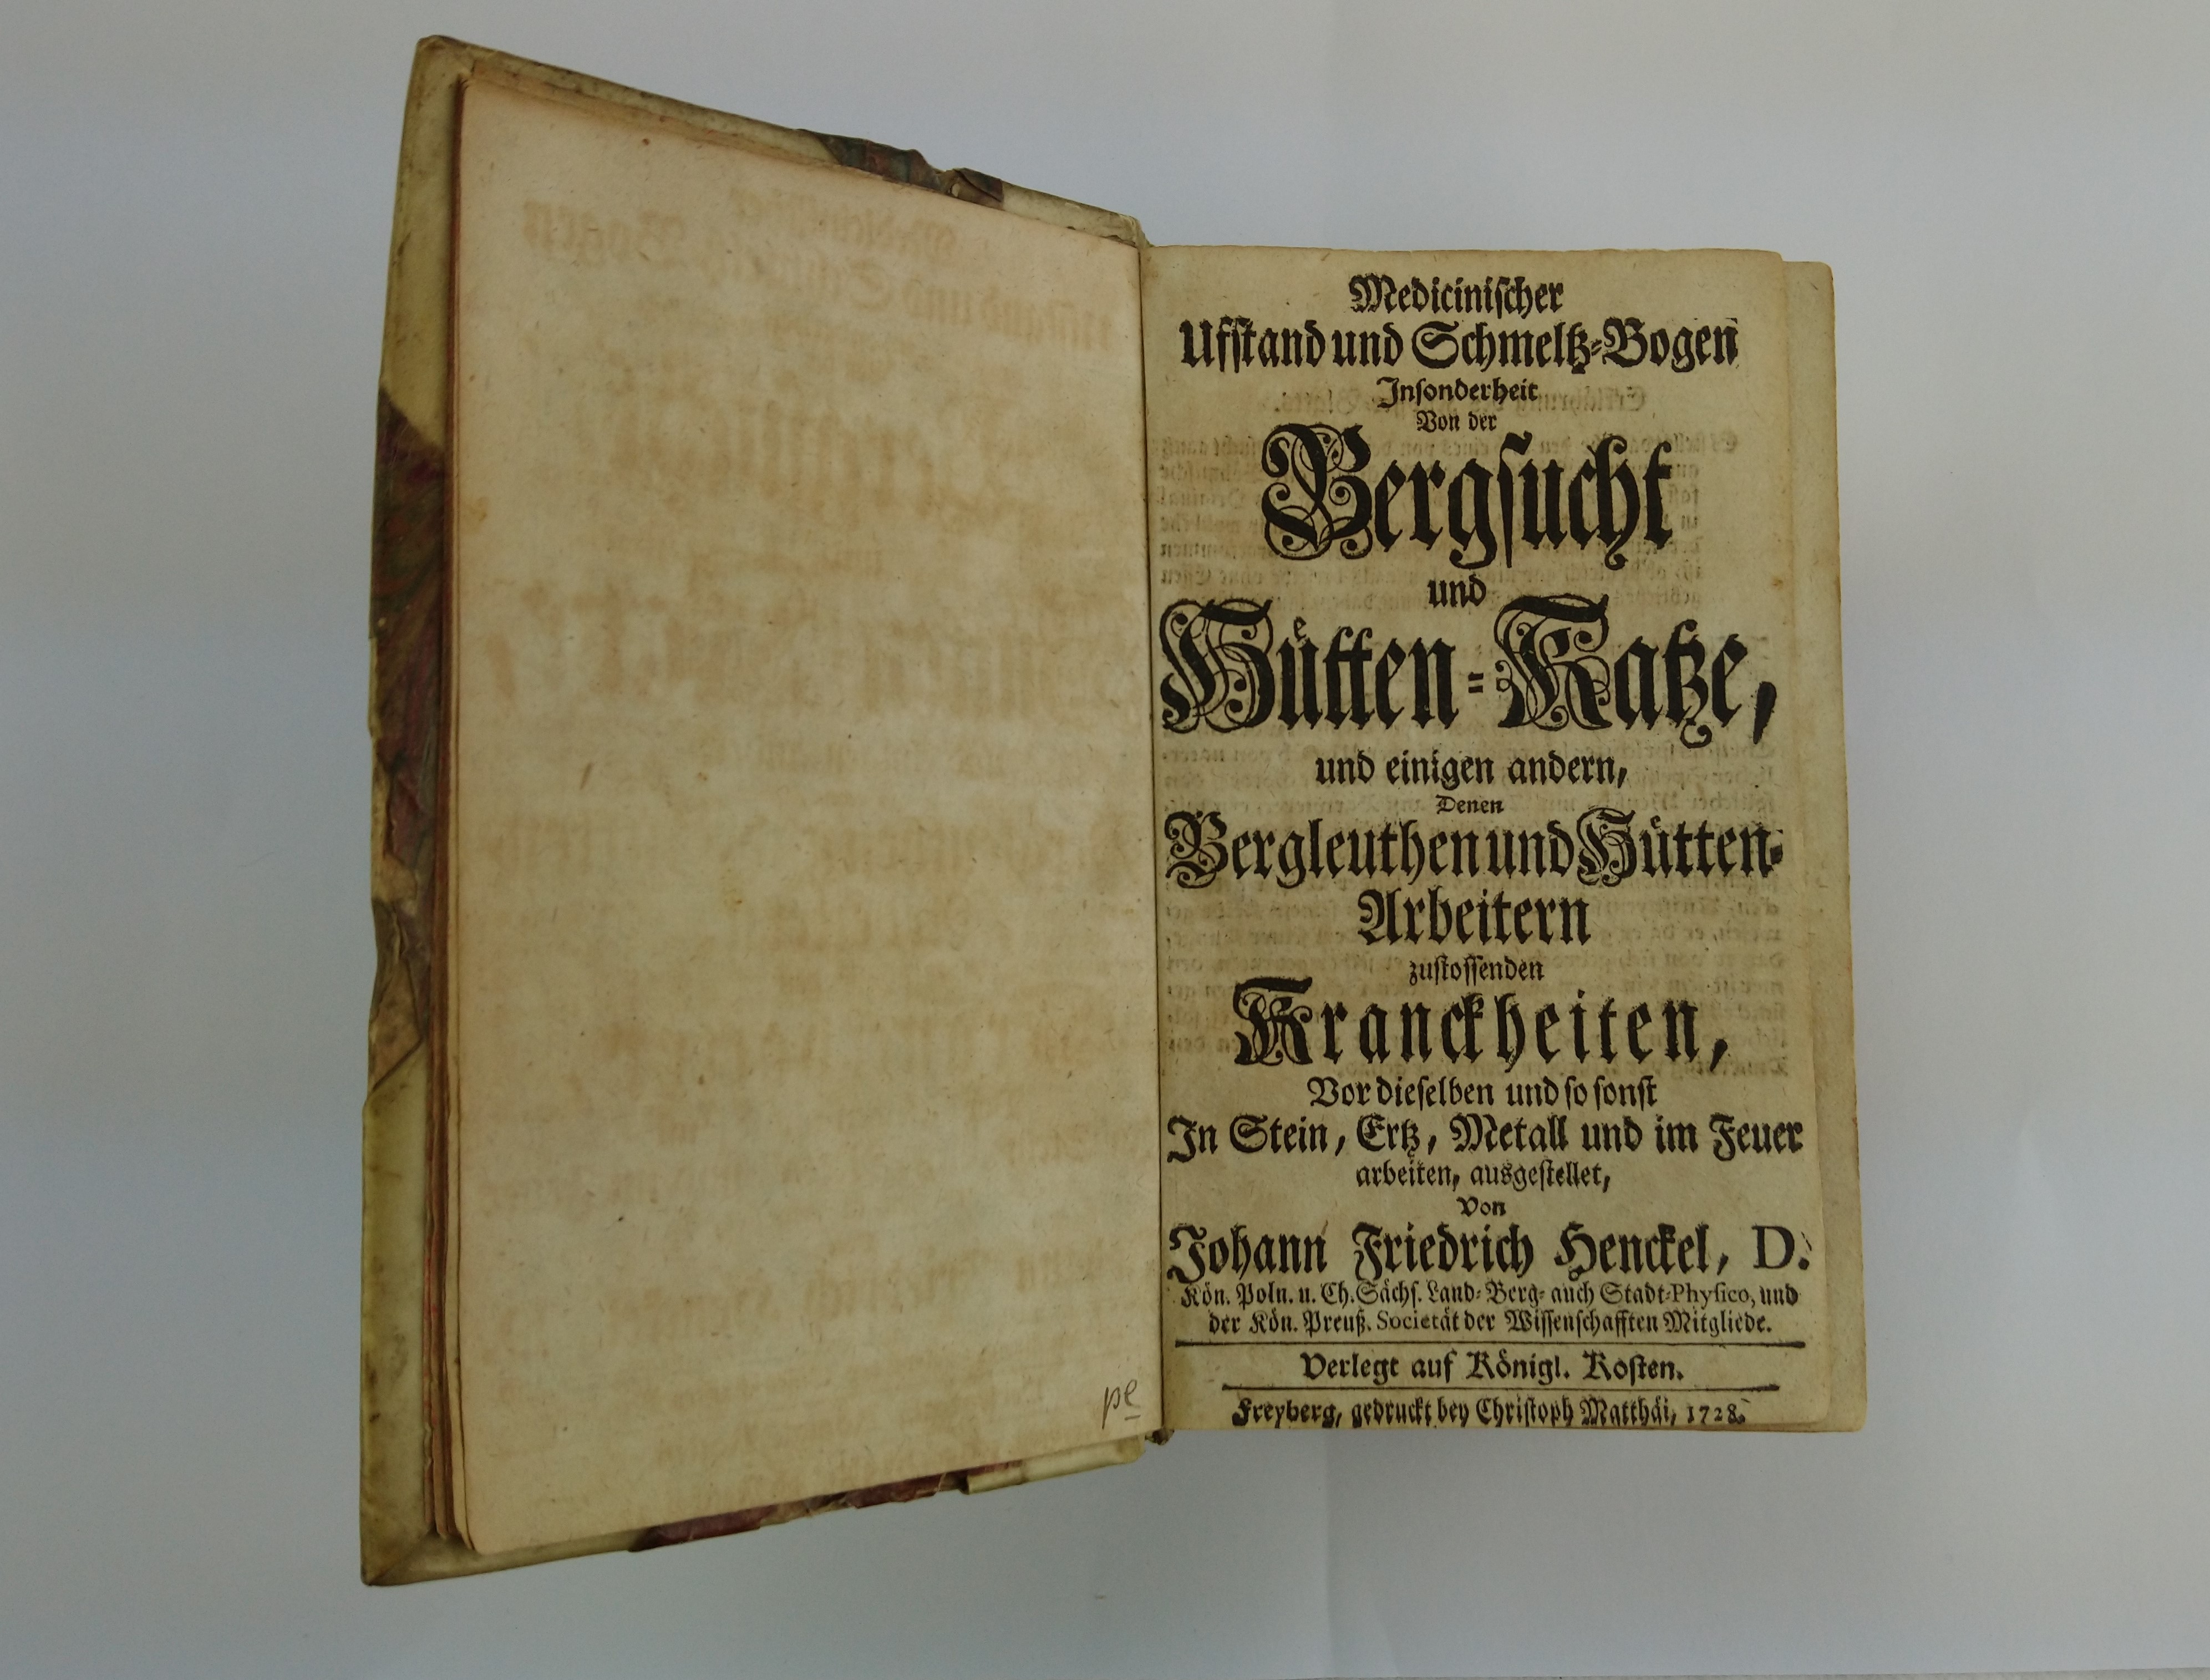 pe
Medicinischer
Ufſtand und Schmeltz-Bogen
Inſonderheit
Von der
Bergſucht
und
Hütten-Katze,
und einigen andern,
Denen
Bergleuthen und Hütten-
Arbeitern
zuſtoſſenden
Kranckheiten,
Vor dieſelben und ſo ſonſt
In Stein, Ertz, Metall und im Feuer
arbeiten, ausgeſtellet,
Von
Johann Friedrich Henckel, D.
Kön. Poln. u. Ch. Sächſ. Land- Berg- auch Stadt-Phyſico, und
der Kön. Preuß. Societät der Wiſſenſchafften Mitgliede.
Verlegt auf Königl. Koſten.
Freyberg, gedruckt bey Chriſtoph Matthäi, 1728.